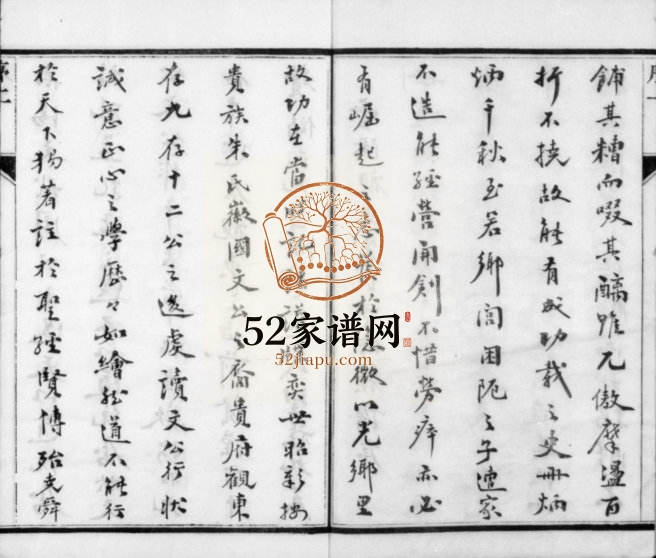 序一
餔其糟而啜其醨雖兀傲摩盪百
折不撓故能有成功載之史冊炳
炳千秋至若鄉閭困阨之子遭家
不造能經營開創不惜勞瘁亦必
有崛起之 於 微以光鄉里
故功在當 記 奕世昭彰按
貴族朱氏徽國文公之裔貴府觀東
存九存十二公之逸處讀文公行狀
誠意正心之學歷々如繪然道不能行
於天下猶著註於聖經賢傳殆支舜
序二
52家谱网
52jiapu.com